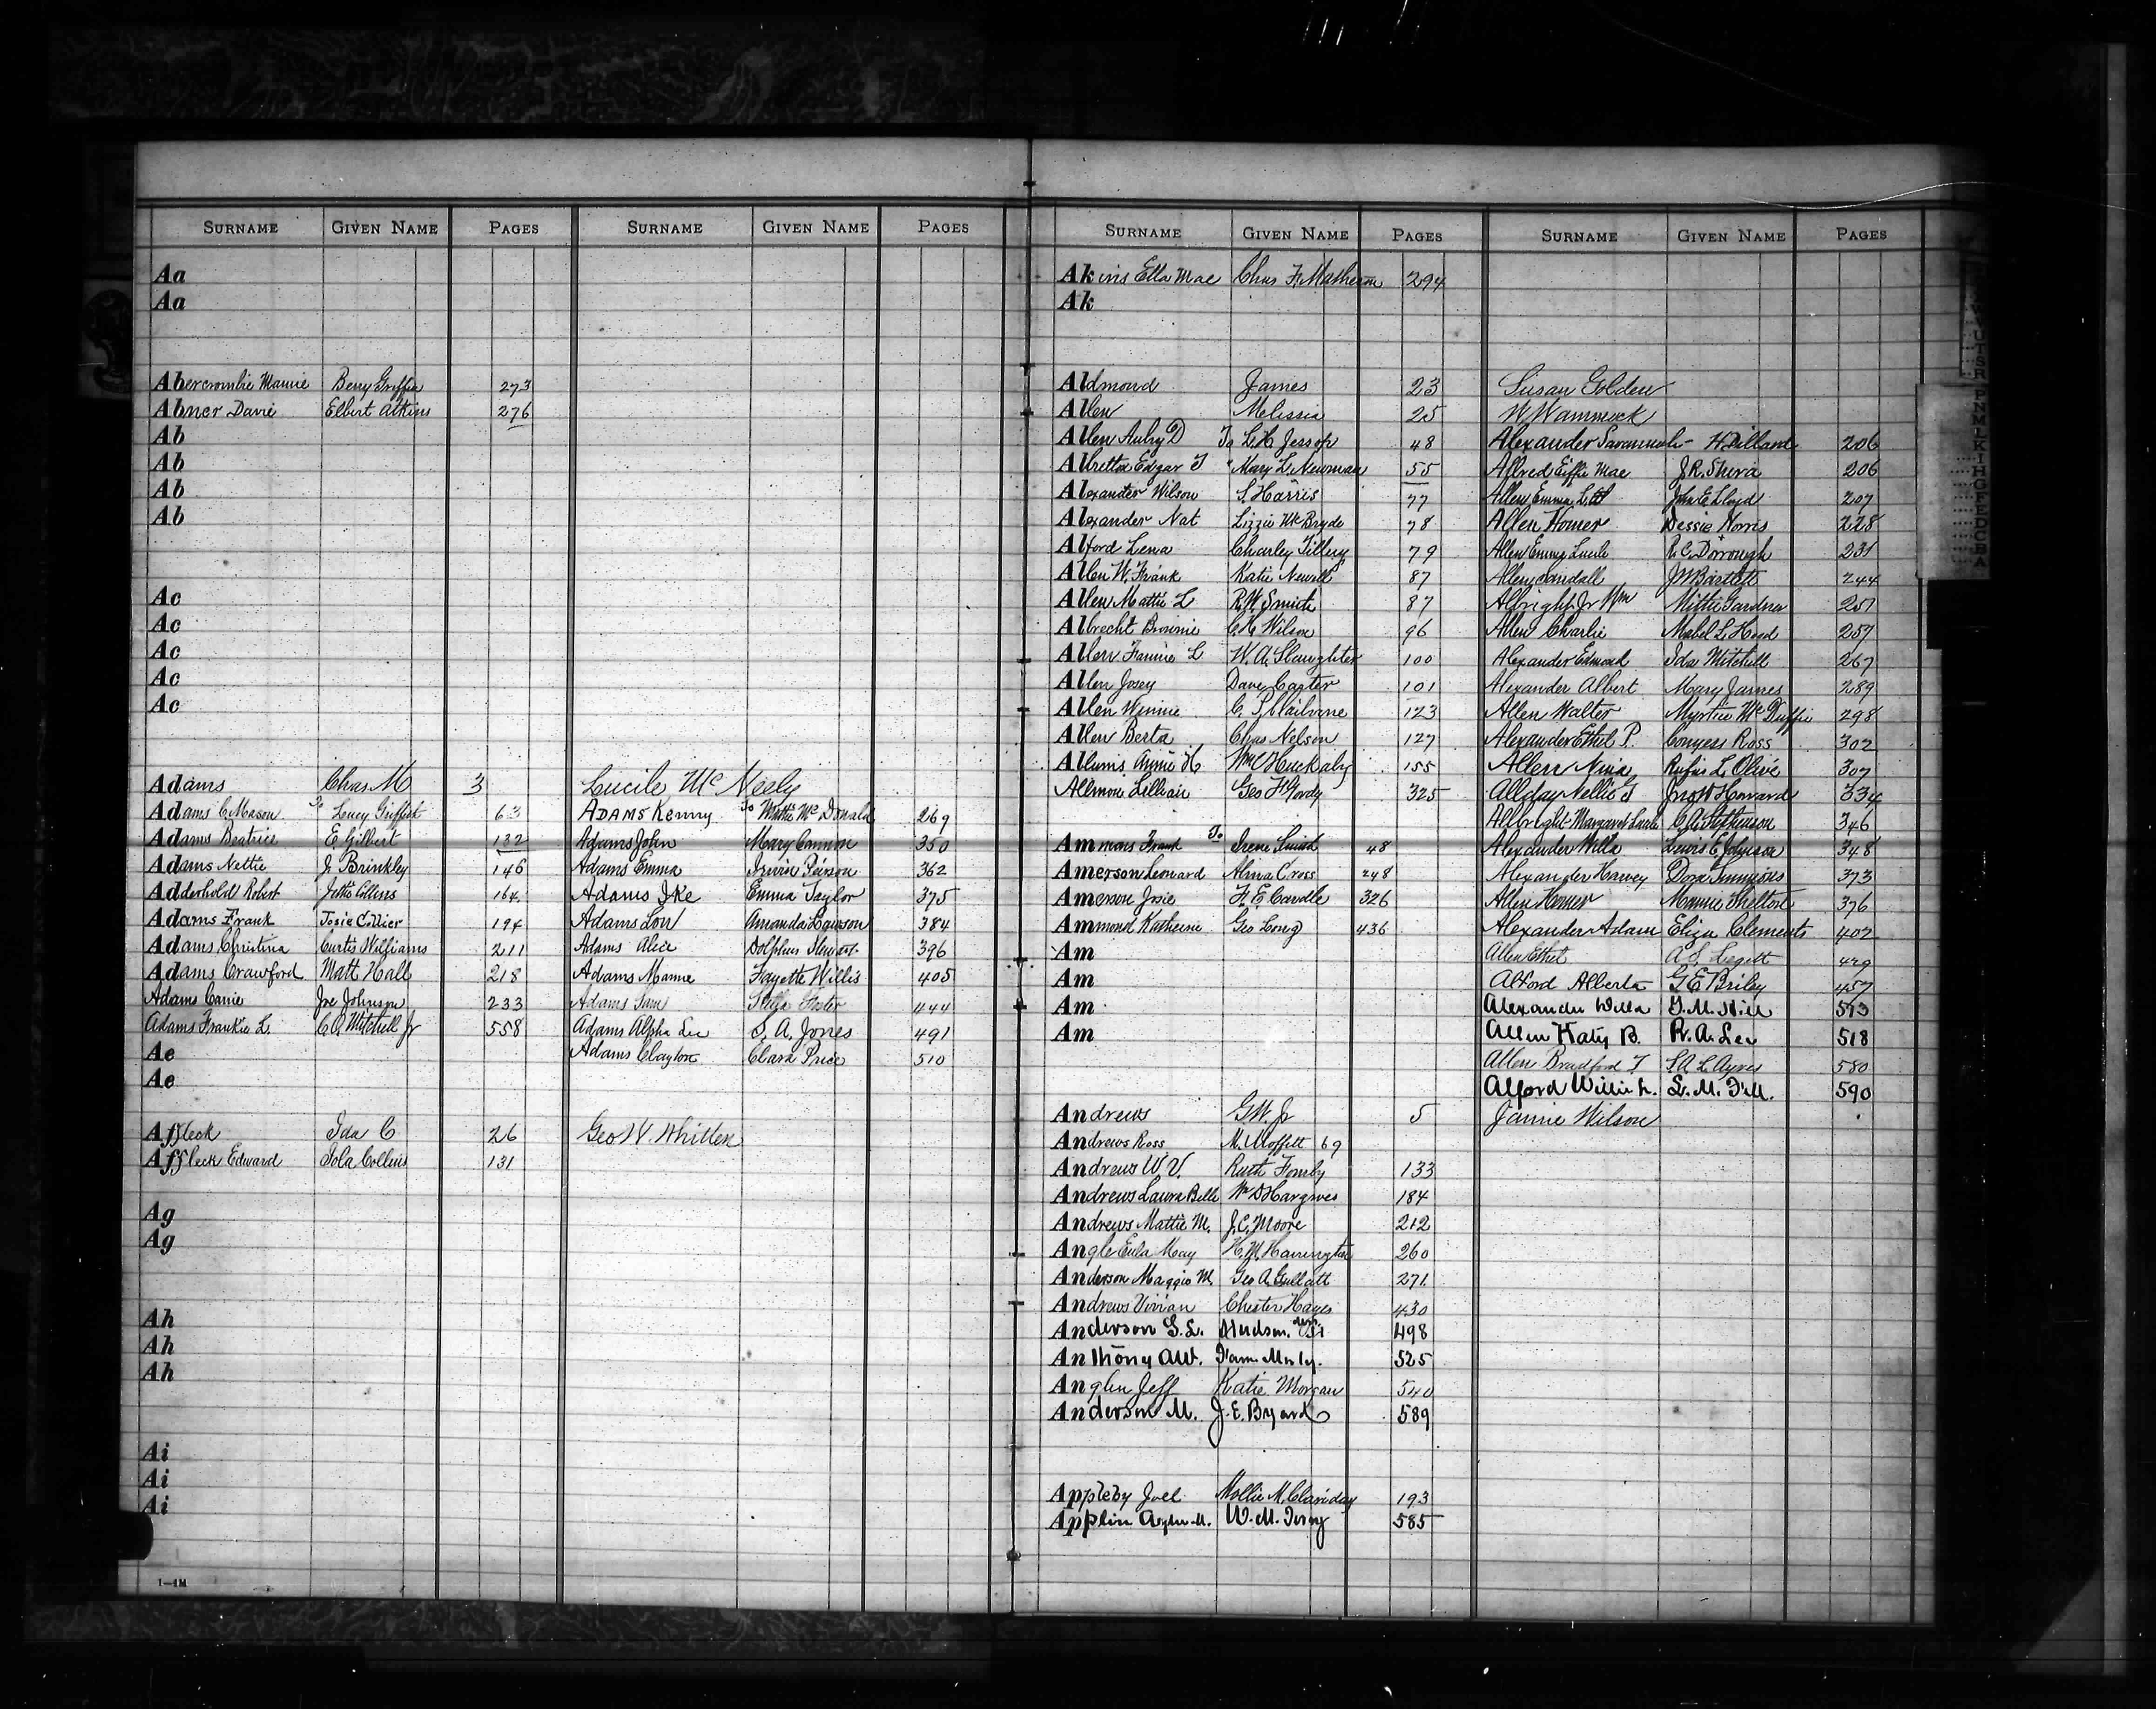 SURNAME GIVEN NAME PAGES SURNAME GIVEN NAME PAGES
Aa
Aa
Abercrombie Mamie Berry Griffin 273
Abner Davie Elbert Atkins 276
Ab
Ab
Ab
Ab
Ac
Ac
Ac
Ac
Ac
Adams Chas M 3 Lucile McNeely
Adams C. Mason To Lucy Griffith 63 ADAMS Kenny To Mattie McDonald 269
Adams Beatrice E. Gilbert 132 Adams John Mary Cannon 350
Adams Nettie J. Brinkley 146 Adams Emma Irvin Pierson 362
Adderhold Robert 164 Adams Ike Emma Taylor 375
Adams Frank Josie Collier 194 Adams Lou Amanda Dawson 384
Adams Christina Curtis Williams 211 Adams Alice Dolphus 396
Adams Crawford Matt Hall 218 Adams Mamie Fayette Willis 405
Adams Carrie Joe Johnson 233 Adams Sam 444
Adams Frankie L. C.O. Mitchell Jr 558 Adams Alpha Lee S. A. Jones 491
Ae Adams Clayton Clara Price 510
Ae
Affleck Ida C 26 Geo W. Whitten
Affleck Edward Iola Collins 131
Ag
Ag
Ah
Ah
Ah
Ai
Ai
Ai
1—1M
SURNAME GIVEN NAME PAGES SURNAME GIVEN NAME PAGES
Akins Ella Mae Chas F. 294
Ak
Aldmond James 23 Susan Golden
Allen Melissia 25 W. Wammock
Allen Aubry D To L.H. Jessop 48 Alexander Savannah - H. Dillard 206
Edgar T " Mary L. Newman 55 Alfred Effie Mae J.R. 206
Alexander Wilson S. Harris 77 Allen Emma L. John E. Lloyd 207
Alexander Nat Lizzie McBryde 78 Allen Homer Dessie Norris 228
Alford Lena Charley Tillery 79 Allen Emma Lucile R.C. Dorrough 231
Allen W. Frank Katie Newell 87 Allen Randall J M Bartlett 244
Allen Mattie L R.W. Smith 87 Albright Jr Wm Mittie Gardner 251
Albrecht Brownie C.H. Wilson 96 Allen Charlie Mabel L. Hood 257
Allen Fannie L W. A. Slaughter 100 Alexander Edmond Ida Mitchell 267
Allen Josey Dave Carter 101 Alexander Albert Mary James 289
Allen Winnie C. P. 123 Allen Walter Myrtice McDuffie 298
Allen Berta Chas Nelson 127 Alexander Ethel P. Conyers Ross 302
Allums Annie H Wm C Huckaby 155 Allen Nina Rufus L. Olive 307
Allmon Lillian Geo F Gordy 325 Allday Nellie T Jno W Howard 334
Albright Margaret C.A. Stephenson 346
Ammons Frank To Irene Smith 48 Alexander Willa Lewis E. Johnson 348
Amerson Leonard Alma Cross 248 Alexander Harvey Dora Simmons 373
Amerson Josie F. E. Caudle 326 Allen Homer Mamie Shelton 376
Ammond Katherine Geo Long 436 Alexander Adam Eliza Clements 402
Am Allen Ethel A. S. 429
Am Alford Alberta G E Briley 457
Am Alexander Willa G. M. Hill 513
Am Allen Katy B. R. A. Lee 518
Allen Bradford T. L. Ayres 580
Alford Willie L. L. M. 590
Andrews G.W. Jr 5 Jamie Wilson
Andrews Ross M. Moffett 69
Andrews W. V. Ruth Fomby 133
Andrews Laura Belle Wm D Hargroves 184
Andrews Mattie M. J.C. Moore 212
Angle Eula May H.M. Harrington 260
Anderson Maggie M. Geo A. Gullatt 271
Andrews Vivian Chester Hayes 430
Anderson G. L. Hudson 498
Anthony A.W. 525
Anglin Jeff Katie Morgan 540
Anderson M. J. E. Byard 589
Appleby Joel Mollie M. 193
Applin W. M. 585
U T S R P N M L K I H G F E D C B A